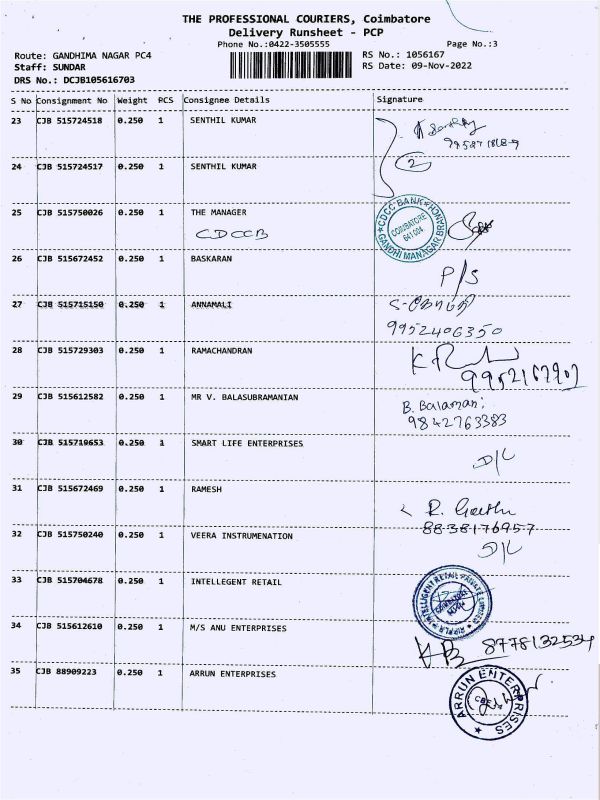 THE PROFESSIONAL COURIERS, Coimbatore
Delivery Runsheet - PCP
Phone No.:0422-3505555 Page No.:3
Route: GANDHIMA NAGAR PC4 RS No.: 1056167
Staff: SUNDAR RS Date: 09-Nov-2022
DRS No.: DCJB105616703
S No Consignment No Weight PCS Consignee Details Signature
23 CJB 515724518 0.250 1 SENTHIL KUMAR
24 CJB 515724517 0.250 1 SENTHIL KUMAR 2
25 CJB 515750026 0.250 1 THE MANAGER
CDCCB
CDCC BANK
COIMBATORE
641 004
GANDHI MANAGAR BRANCH
26 CJB 515672452 0.250 1 BASKARAN P/S
27 CJB 515715150 0.250 1 ANNAMALI
9952406350
28 CJB 515729303 0.250 1 RAMACHANDRAN
29 CJB 515612582 0.250 1 MR V. BALASUBRAMANIAN B. Balamani
9842763383
30 CJB 515719653 0.250 1 SMART LIFE ENTERPRISES D/L
31 CJB 515672469 0.250 1 RAMESH
8838176957
32 CJB 515750240 0.250 1 VEERA INSTRUMENATION D/L
33 CJB 515704678 0.250 1 INTELLEGENT RETAIL
INTELLIGENT RETAIL PRIVATE LIMITED
COIMBATORE
34 CJB 515612610 0.250 1 M/S ANU ENTERPRISES
8778132534
35 CJB 88909223 0.250 1 ARRUN ENTERPRISES
ARRUN ENTERPRISES
CBE